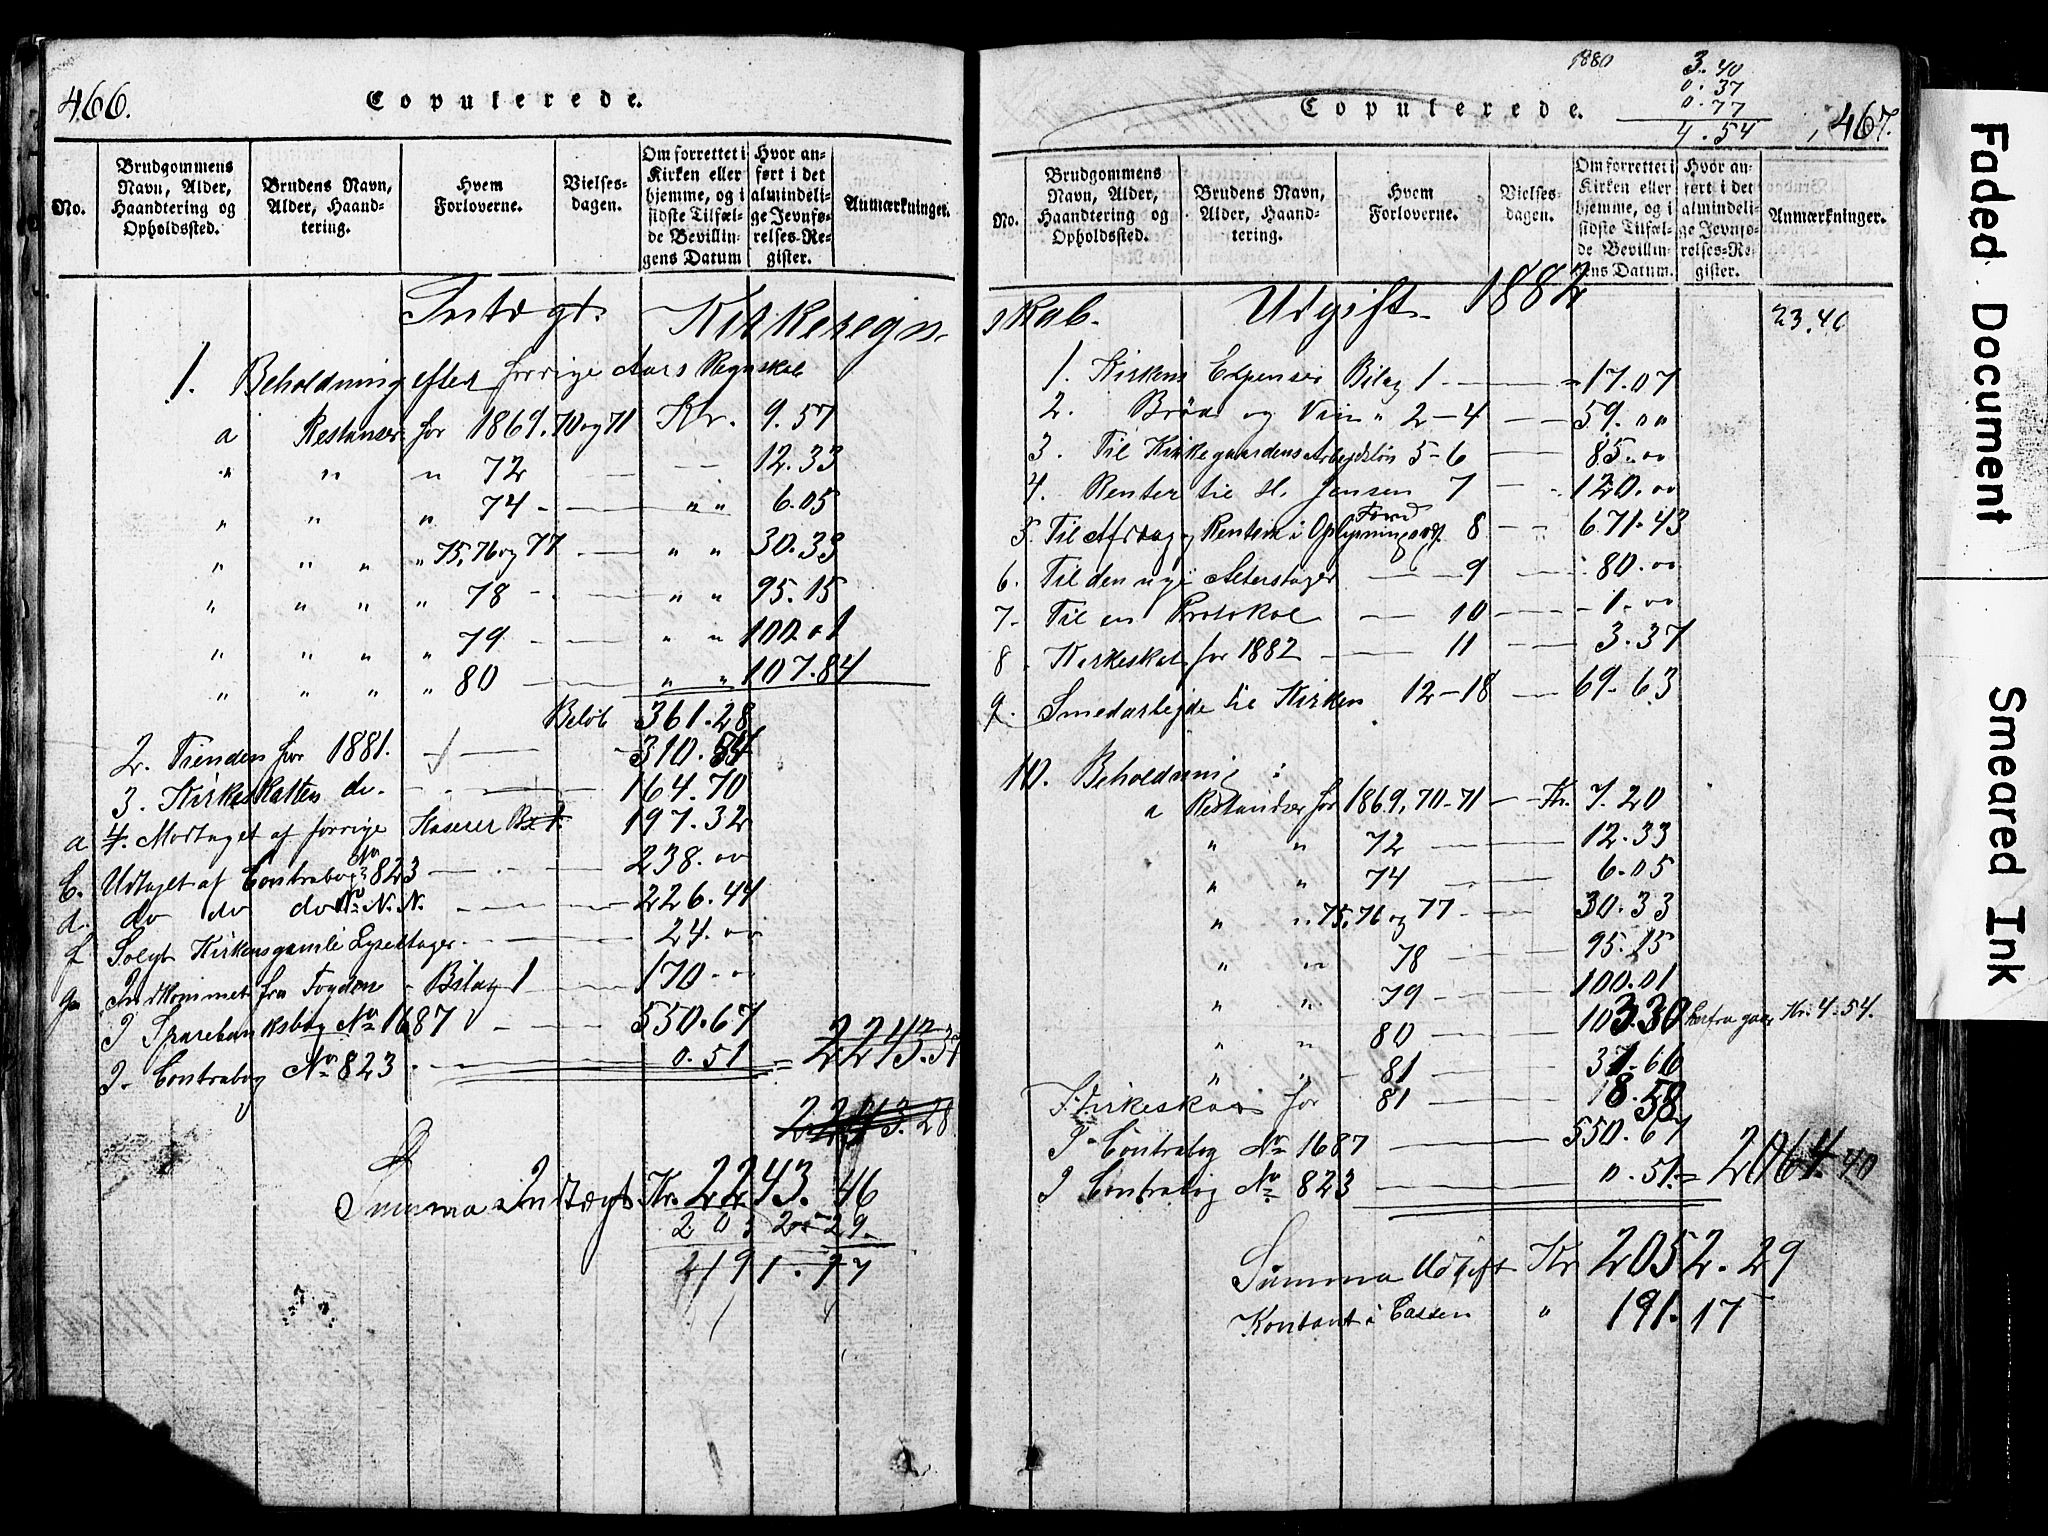 466.
Copulerede.
No.
Brudgommens Navn, Alder, Haandtering og Opholdssted.
Brudens Navn, Alder, Haandtering.
Hvem Forloverne.
Vielses-dagen.
Om forrettet i Kirken eller hjemme, og i sidste Tilfælde Bevillingens Datum
Hvor anført i det almindelige Jevnførelses-Register.
Anmærkninger.
Indtægt. Kirkeregn-
1. Beholdning efter forrige Aars Regnskab
a Restanser for 1869. 70 og 71 Kr. 9.57
" " " 72 — — 12.33
" " " 74 — " " 6.05
" " " " 75, 76 og 77 — " " 30.33
" " " " 78 — " " 95.15
" " " " 79 — " " 100.01
" " " " 80 — " " 107.84
Beløb 361.28
2. Tienden for 1881. — 310.84
3. Kirkeskatten do. — 164.70
a 4. Modtaget af forrige Kaserer 197.32
b. Udtaget af Contrabog No 823 — 238.00
d. do do do No N.N. — 226.44
f Solgt Kirkens gamle Lysestager. — 24.00
g. Indkommet fra Fogden - Bilag 1 170.00
I Sparebanksbog No 1687 — 550.67
I - Contrabog No 823 — 0.51 = 2243.37
2243.28
Summa Indtægt Kr. 2243.46
2052.29
191.17
1880
3.40
0.37
0.77
4.54
Copulerede.
467.
No.
Brudgommens Navn, Alder, Haandtering og Opholdssted.
Brudens Navn, Alder, Haandtering.
Hvem Forloverne.
Vielses-dagen.
Om forrettet i Kirken eller hjemme, og i sidste Tilfælde Bevillingens Datum.
Hvor anført i det almindelige Jevnførelses-Register.
Anmærkninger.
skab. Udgift 1882
23.40
1. Kirkens Expenser Bilag 1 — 17.07
2. Brød og Vin " 2-4 — 59.00
3. Til Kirkegaardens Arbeidsløn 5-6 — 85.00
4. Renter til H. Jensen 7 — 120.00
5. Til Afdrag og Renter i Oplysningsv. Fond 8 — 671.43
6. Til den nye Alterstager — 9 — 80.00
7. Til en Protokol — 10 — 1.00
8. Kirkeskat for 1882 — 11 — 3.37
9. Smedarbeide til Kirken 12-18 — 69.63
10. Beholdning :
a Restandser for 1869, 70-71 — Kr. 7.20
" " 72 — 12.33
" " 74 — 6.05
" " 75, 76 og 77 — 30.33
" " 78 — 95.15
" " 79 — 100.01
" " 80 — 103.30 herfra gaar Kr. 4.54.
" " - 81 — 37.66
Kirkeskat for 81 — 18.58
58
I - Contrabog No 1687 — 550.67
I Contrabog No 823 — 0.51 = 2064.40
Summa Udgift Kr 2052.29
Kontant i Cassen " 191.17
Faded Document
Smeared Ink